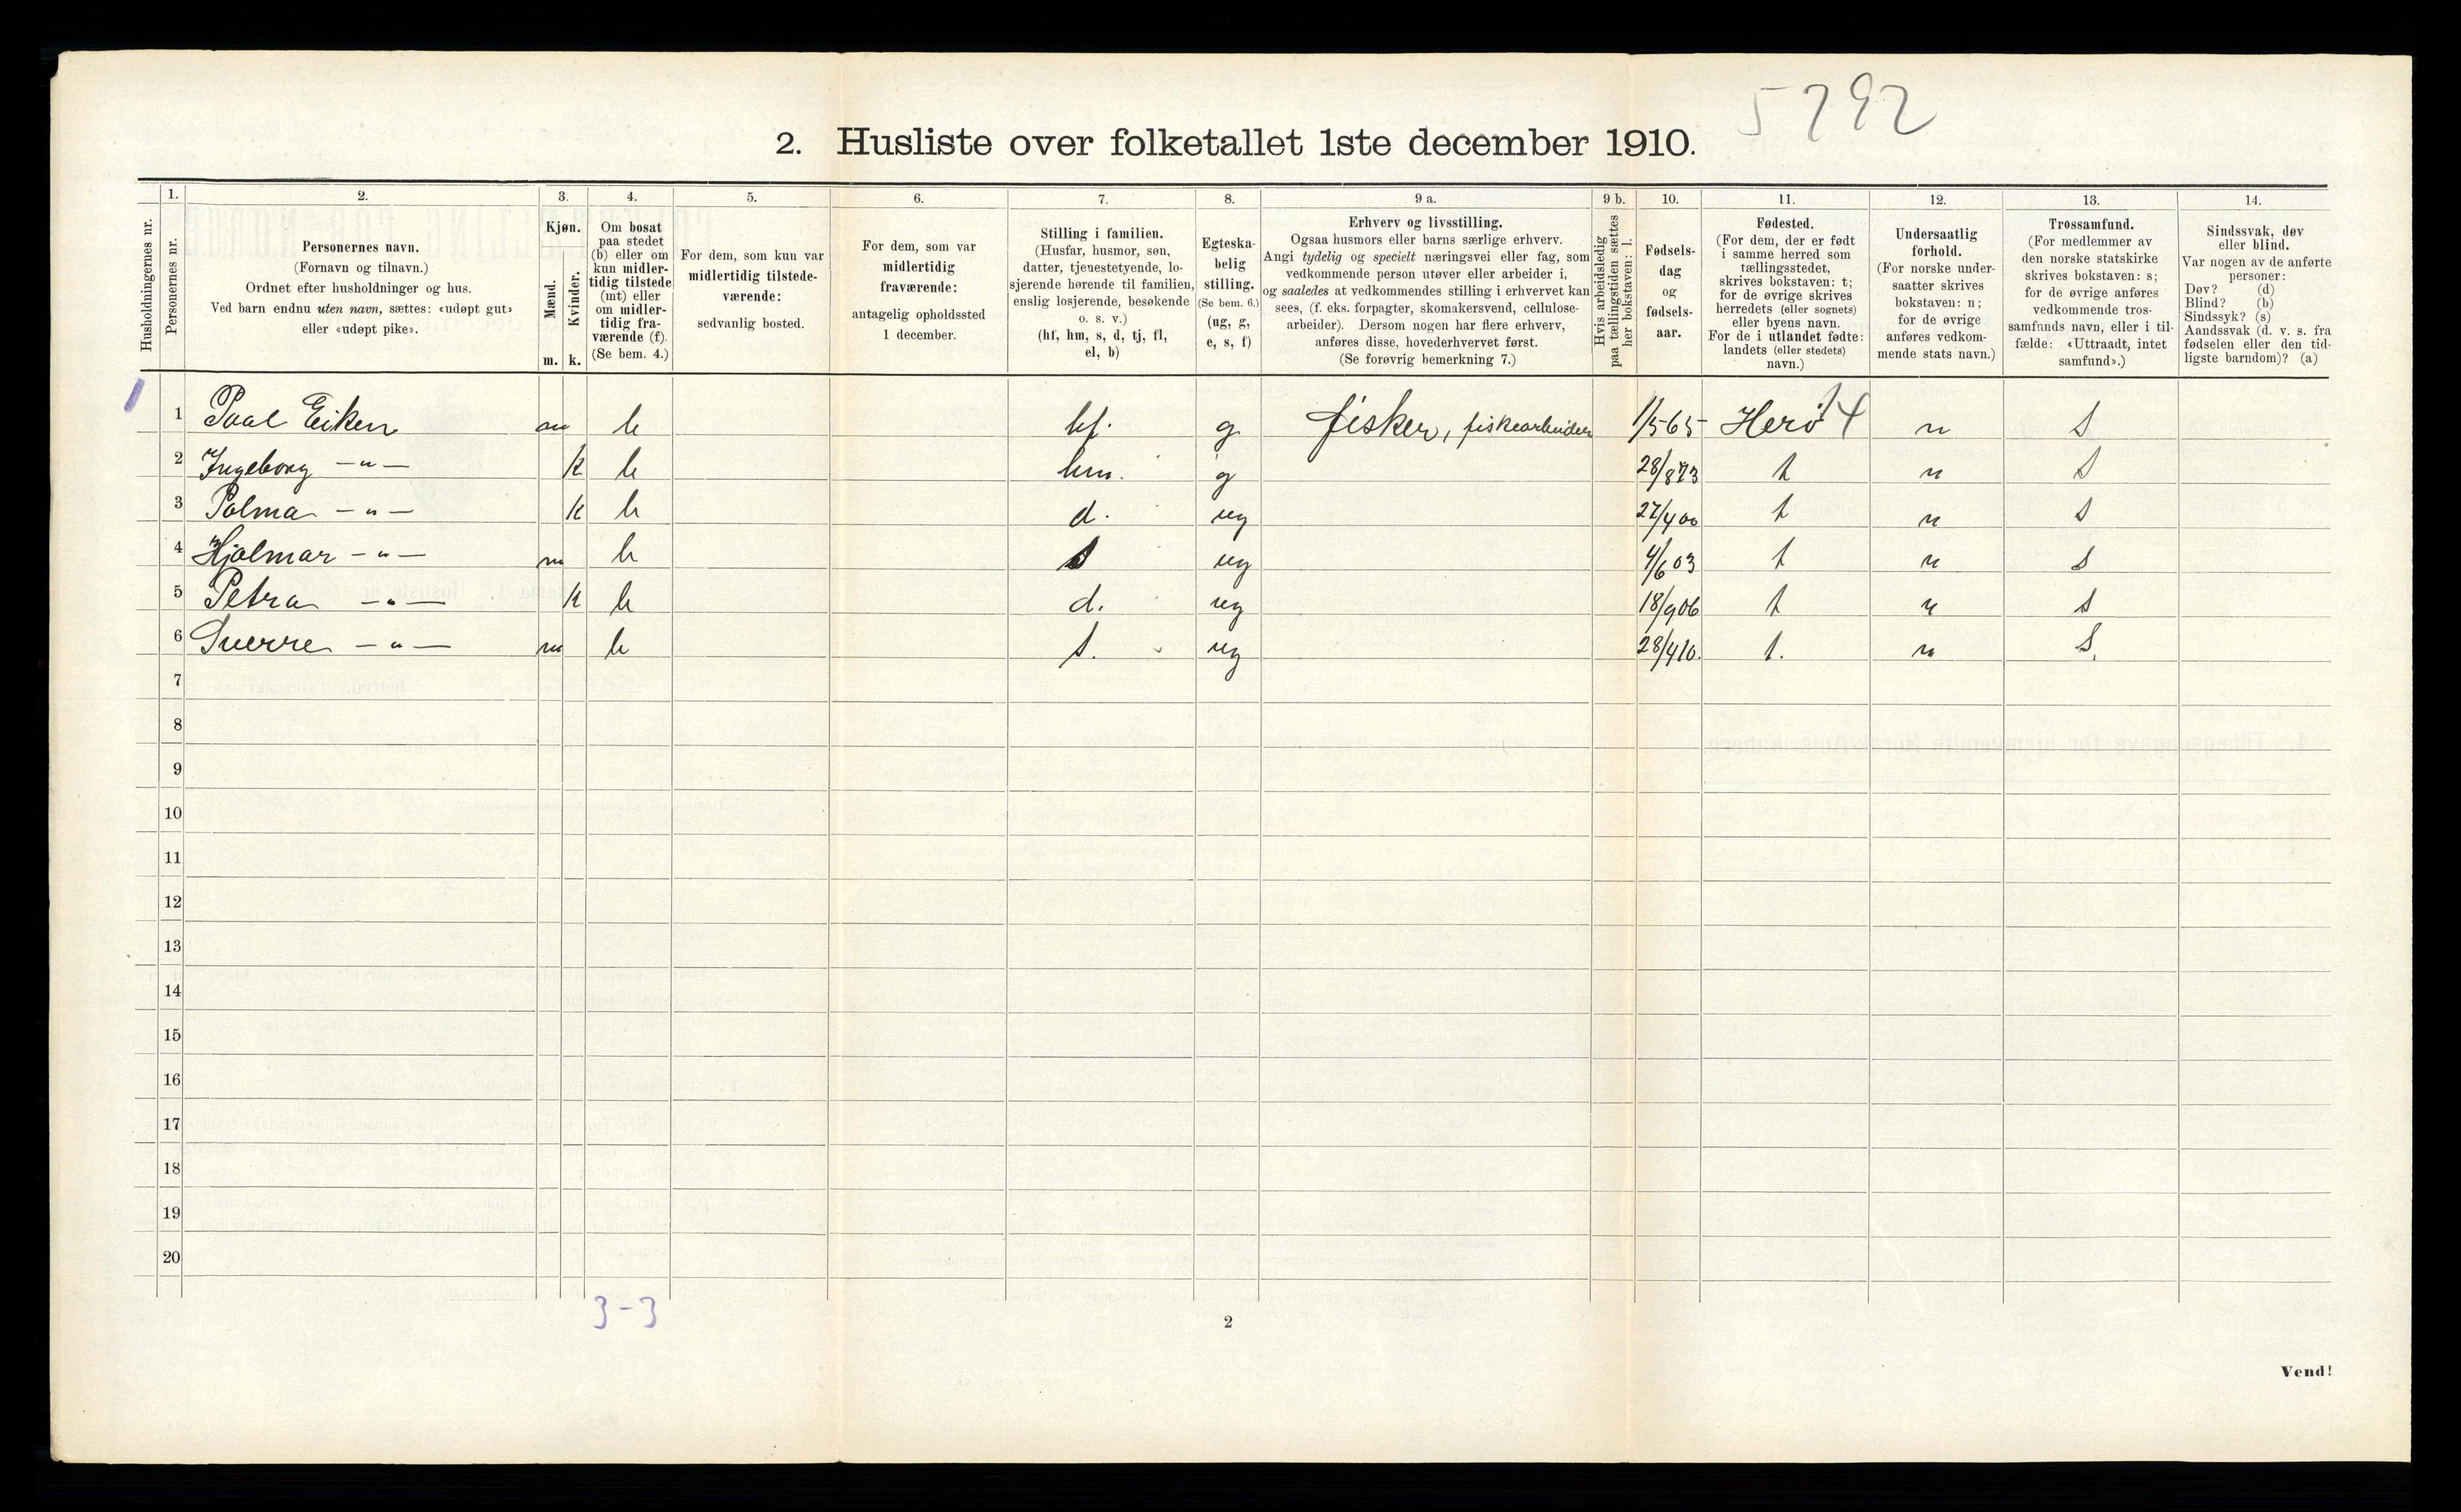 5792
2. Husliste over folketallet 1ste december 1910.
Husholdningernes nr.
1.
Personernes nr.
2.
Personernes navn.
(Fornavn og tilnavn.)
Ordnet efter husholdninger og hus.
Ved barn endnu uten navn, sættes: «udøpt gut»
eller «udøpt pike».
3.
Kjøn.
Mænd.
Kvinder.
m. k.
4.
Om bosat
paa stedet
(b) eller om
kun midler-
tidig tilstede
(mt) eller
om midler-
tidig fra-
værende (f).
(Se bem. 4.)
5.
For dem, som kun var
midlertidig tilstede-
værende:
sedvanlig bosted.
6.
For dem, som var
midlertidig
fraværende:
antagelig opholdssted
1 december.
7.
Stilling i familien.
(Husfar, husmor, søn,
datter, tjenestetyende, lo-
sjerende hørende til familien,
enslig losjerende, besøkende
o. s. v.)
(hf, hm, s, d, tj, fl,
el, b)
8.
Egteska-
belig
stilling.
(Se bem. 6.)
(ug, g,
e, s, f)
9 a.
Erhverv og livsstilling.
Ogsaa husmors eller barns særlige erhverv.
Angi tydelig og specielt næringsvei eller fag, som
vedkommende person utøver eller arbeider i,
og saaledes at vedkommendes stilling i erhvervet kan
sees, (f. eks. forpagter, skomakersvend, cellulose-
arbeider). Dersom nogen har flere erhverv,
anføres disse, hovederhvervet først.
(Se forøvrig bemerkning 7.)
9 b.
Hvis arbeidsledig
paa tællingstiden sættes
her bokstaven: l.
10.
Fødsels-
dag
og
fødsels-
aar.
11.
Fødested.
(For dem, der er født
i samme herred som
tællingsstedet,
skrives bokstaven: t;
for de øvrige skrives
herredets (eller sognets)
eller byens navn.
For de i utlandet fødte:
landets (eller stedets)
navn.)
12.
Undersaatlig
forhold.
(For norske under-
saatter skrives
bokstaven: n;
for de øvrige
anføres vedkom-
mende stats navn.)
13.
Trossamfund.
(For medlemmer av
den norske statskirke
skrives bokstaven: s;
for de øvrige anføres
vedkommende tros-
samfunds navn, eller i til-
fælde: «Uttraadt, intet
samfund».)
14.
Sindssvak, døv
eller blind.
Var nogen av de anførte
personer:
Døv? (d)
Blind? (b)
Sindssyk? (s)
Aandssvak (d. v. s. fra
fødselen eller den tid-
ligste barndom)? (a)
1 Paal Eiken m b hf. g fisker, fiskearbeider 1/5 65 Herö n s
2 Ingeborg —„— k b hm. g 28/8 73 t n s
3 Palma —„— k b d. ug 27/4 00 t n s
4 Hjalmar —„— m b s ug 4/6 03 t n s
5 Petra —„— k b d. ug 18/9 06 t n s
6 Sverre —„— m b s. ug 28/4 10. t. n s.
7
8
9
10
11
12
13
14
15
16
17
18
19
20
3-3
2
Vend!